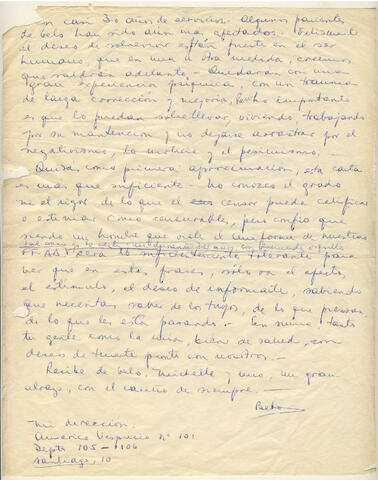 con casi 30 años de servicios. Algunos parientes
de Gelo han sido aún más afectados. Felizmente
el deseo de sobrevivir es tan fuerte en el ser
humano, que en una u otra medida, creemos
que saldrán adelante. - Quedarán con una
gran experiencia psíquica, con un trauma
de larga corrección y mejoría, lo importante
es que lo puedan sobrellevar, viviendo, trabajando
por su mantención y no dejarse arrastrar por el
negativismo, la molicie y el pesimismo. -
Quizás como primera aproximación, esta carta
es más que suficiente. - No conozco el grado
ni el rigor de lo que el censor pueda calificar
o estimar como censurable, pero confío que
siendo un hombre que viste el uniforme de nuestras
FF.AA. será lo suficientemente tolerante para
ver que en estas frases, sólo va el afecto,
el estímulo, el deseo de informarte, sabiendo
que necesitas saber de los tuyos, de lo que piensan
de lo que les está pasando. - En suma, tanto
tu gente como la mía, bien de salud, con
deseos de tenerte pronto con nosotros. -
Recibe de Gelo, Michelle y mío, un gran
abrazo, con el cariño de siempre. -
Beto
Mi dirección
Américo Vespucio N° 101
Depto 105 - 106
Santiago, 10